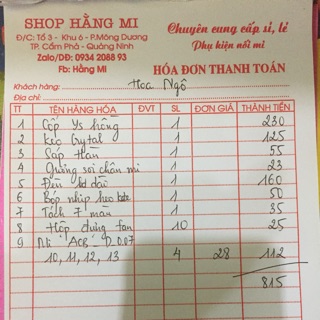 SHOP HẰNG MI
Đ/C: Tổ 3 - Khu 6 - P.Mông Dương
TP. Cẩm Phả - Quảng Ninh
Zalo/DĐ: 0934 2088 93
Fb: Hằng Mi
Chuyên cung cấp sỉ, lẻ
Phụ kiện nối mi
HÓA ĐƠN THANH TOÁN
Khách hàng: Hoa Ngô
Địa chỉ:
TT TÊN HÀNG HÓA ĐVT SL ĐƠN GIÁ THÀNH TIỀN
1 Cốp Ys hồng 1 230
2 Keo Crytal 1 125
3 Sáp Hàn 1 55
4 Gương soi chân mi 1 23
5 Đèn dài 1 160
6 Bộ nhíp 1 50
7 Tách 7 màu 1 35
8 Hộp đựng fan 10 25
9 Mi "ACB" D 0.07
10, 11, 12, 13 4 28 112
815